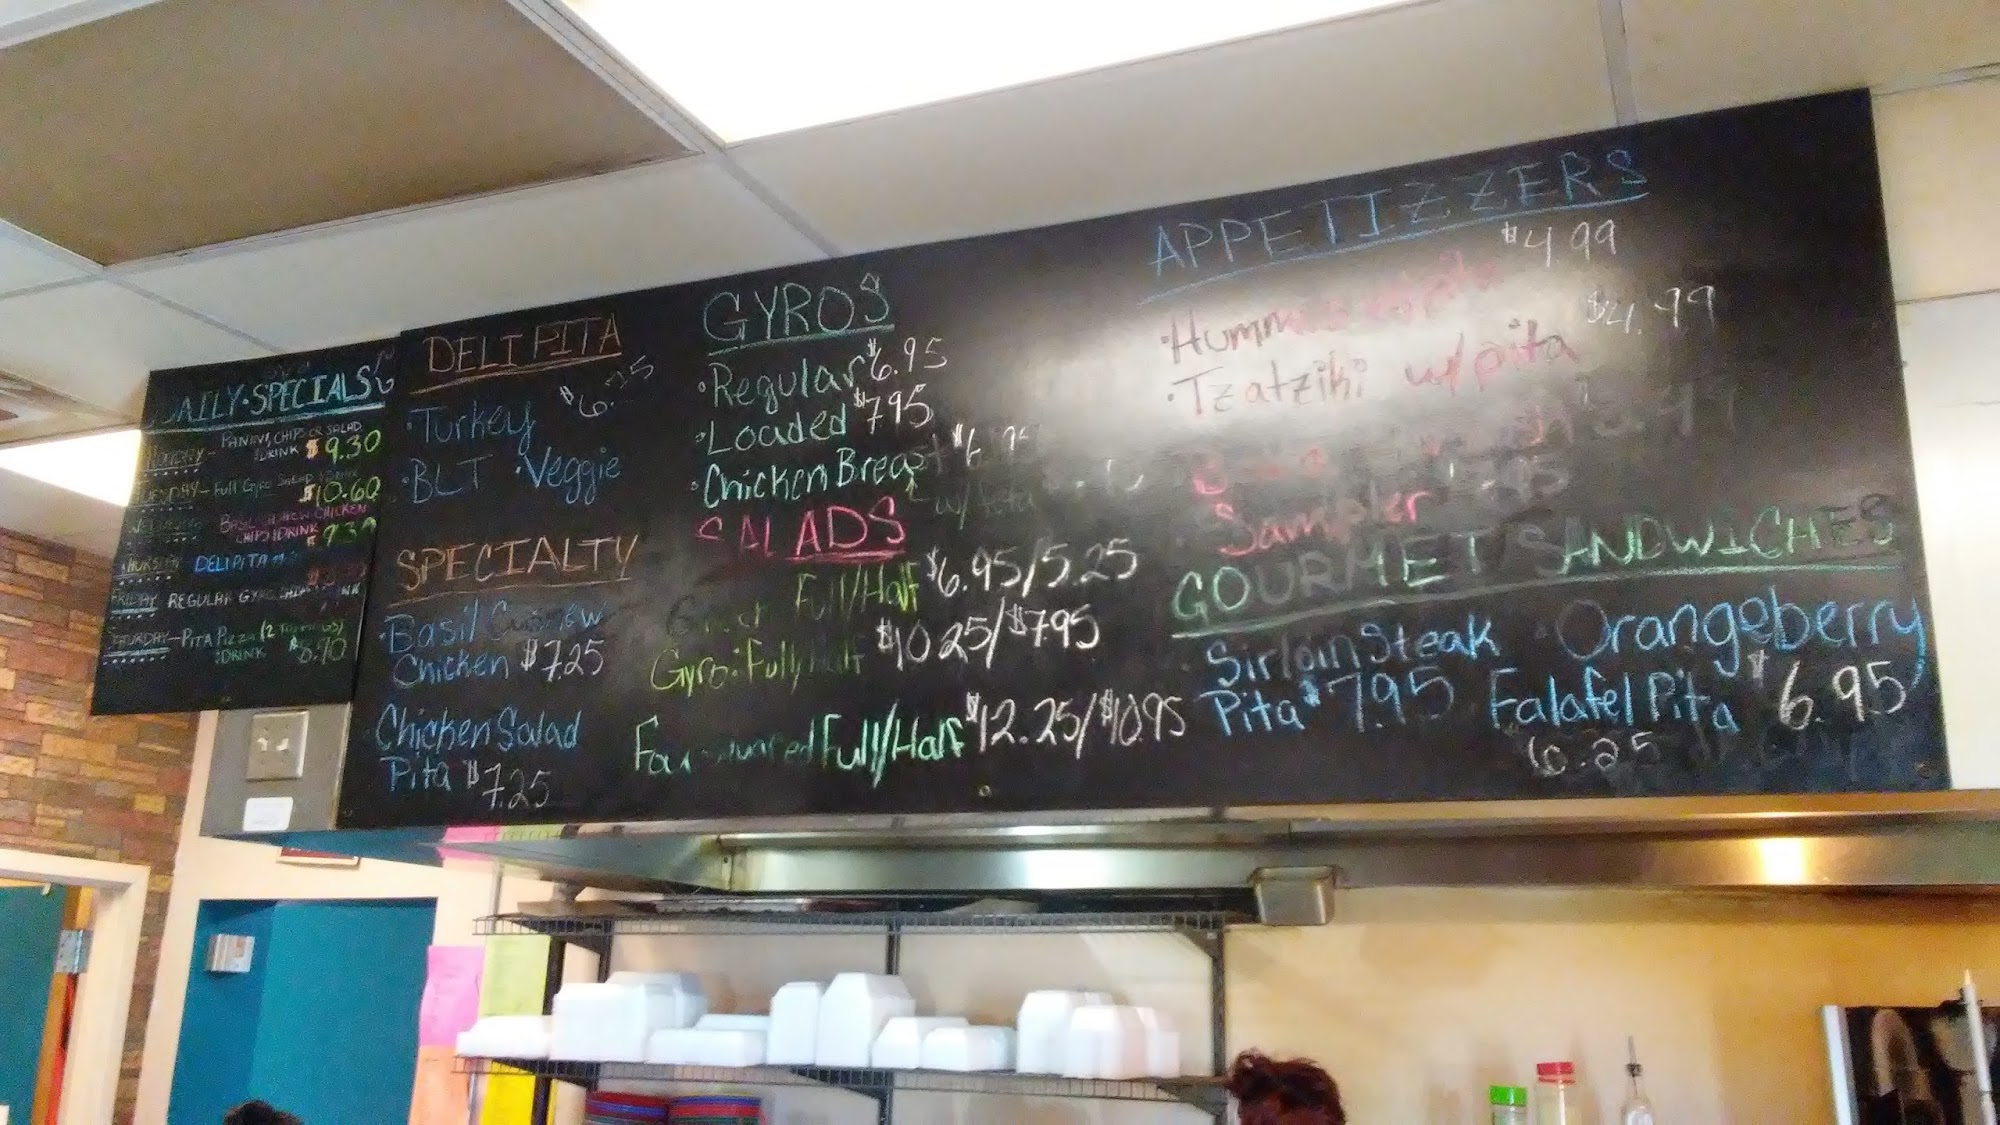 DAILY SPECIALS
MONDAY - PANINI, CHIPS OR SALAD
DRINK $9.30
TUESDAY - FULL GYRO SALAD
$10.60
BASIL CASHEW CHICKEN
CHIPS DRINK 9.39
THURSDAY DELI PITA
FRIDAY REGULAR GYRO
SATURDAY - PITA PIZZA (2
DRINK $8.90
DELI PITA
$6.25
·Turkey
·BLT ·Veggie
SPECIALTY
·Basil Cashew
Chicken $7.25
Chicken Salad
Pita $7.25
GYROS
·Regular $6.95
·Loaded $7.95
·Chicken Breast $6.95
w/ Pita
SALADS
Greek Full/Half $6.95/5.25
Gyro: Full/Half $10.25/$7.95
Full/Half $12.25/$10.95
APPETIZZERS
·Hummus w/pita $4.99
·Tzatziki w/pita $4.99
Sampler
GOURMET SANDWICHES
·Sirloin Steak
Pita $7.95
·Orangeberry
Falafel Pita $6.95
6.25